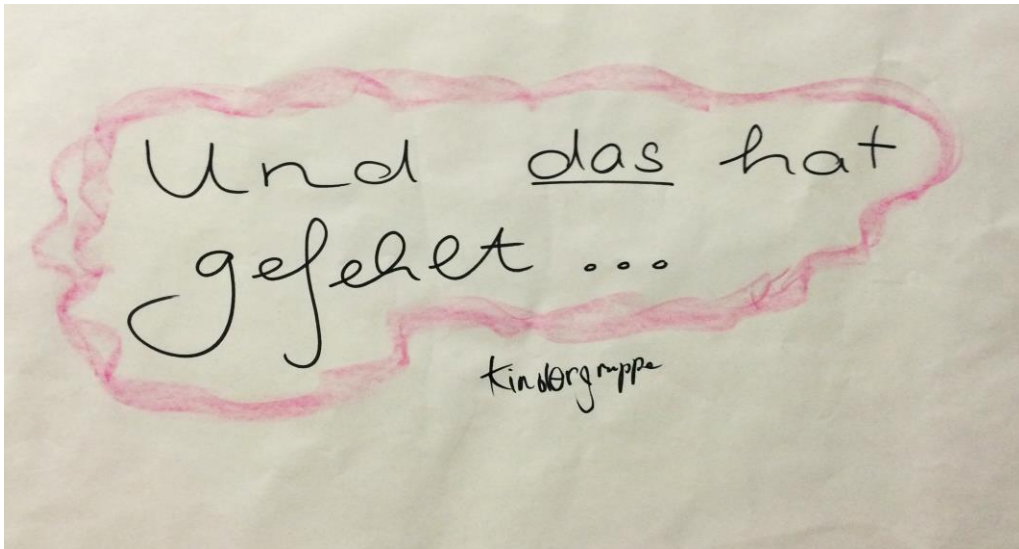 Und das hat
gefehlt ...
Kindergruppe